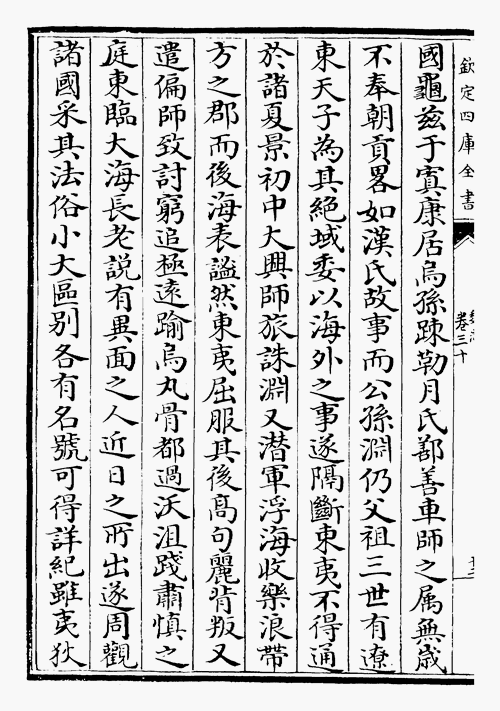 欽定四庫全書
卷三十
國龜茲于寘康居烏孫踈勒月氏鄯善車師之属無歲
不奉朝貢畧如漢氏故事而公孫淵仍父祖三世有遼
東天子為其絕域委以海外之事遂隔斷東夷不得通
於諸夏景初中大興師旅誅淵又潛軍浮海收樂浪帶
方之郡而後海表謐然東夷屈服其後高句麗背叛又
遣偏師致討窮追極遠踰烏丸骨都過沃沮踐肅慎之
庭東臨大海長老説有異面之人近日之所出遂周觀
諸國采其法俗小大區别各有名號可得詳紀雖夷狄